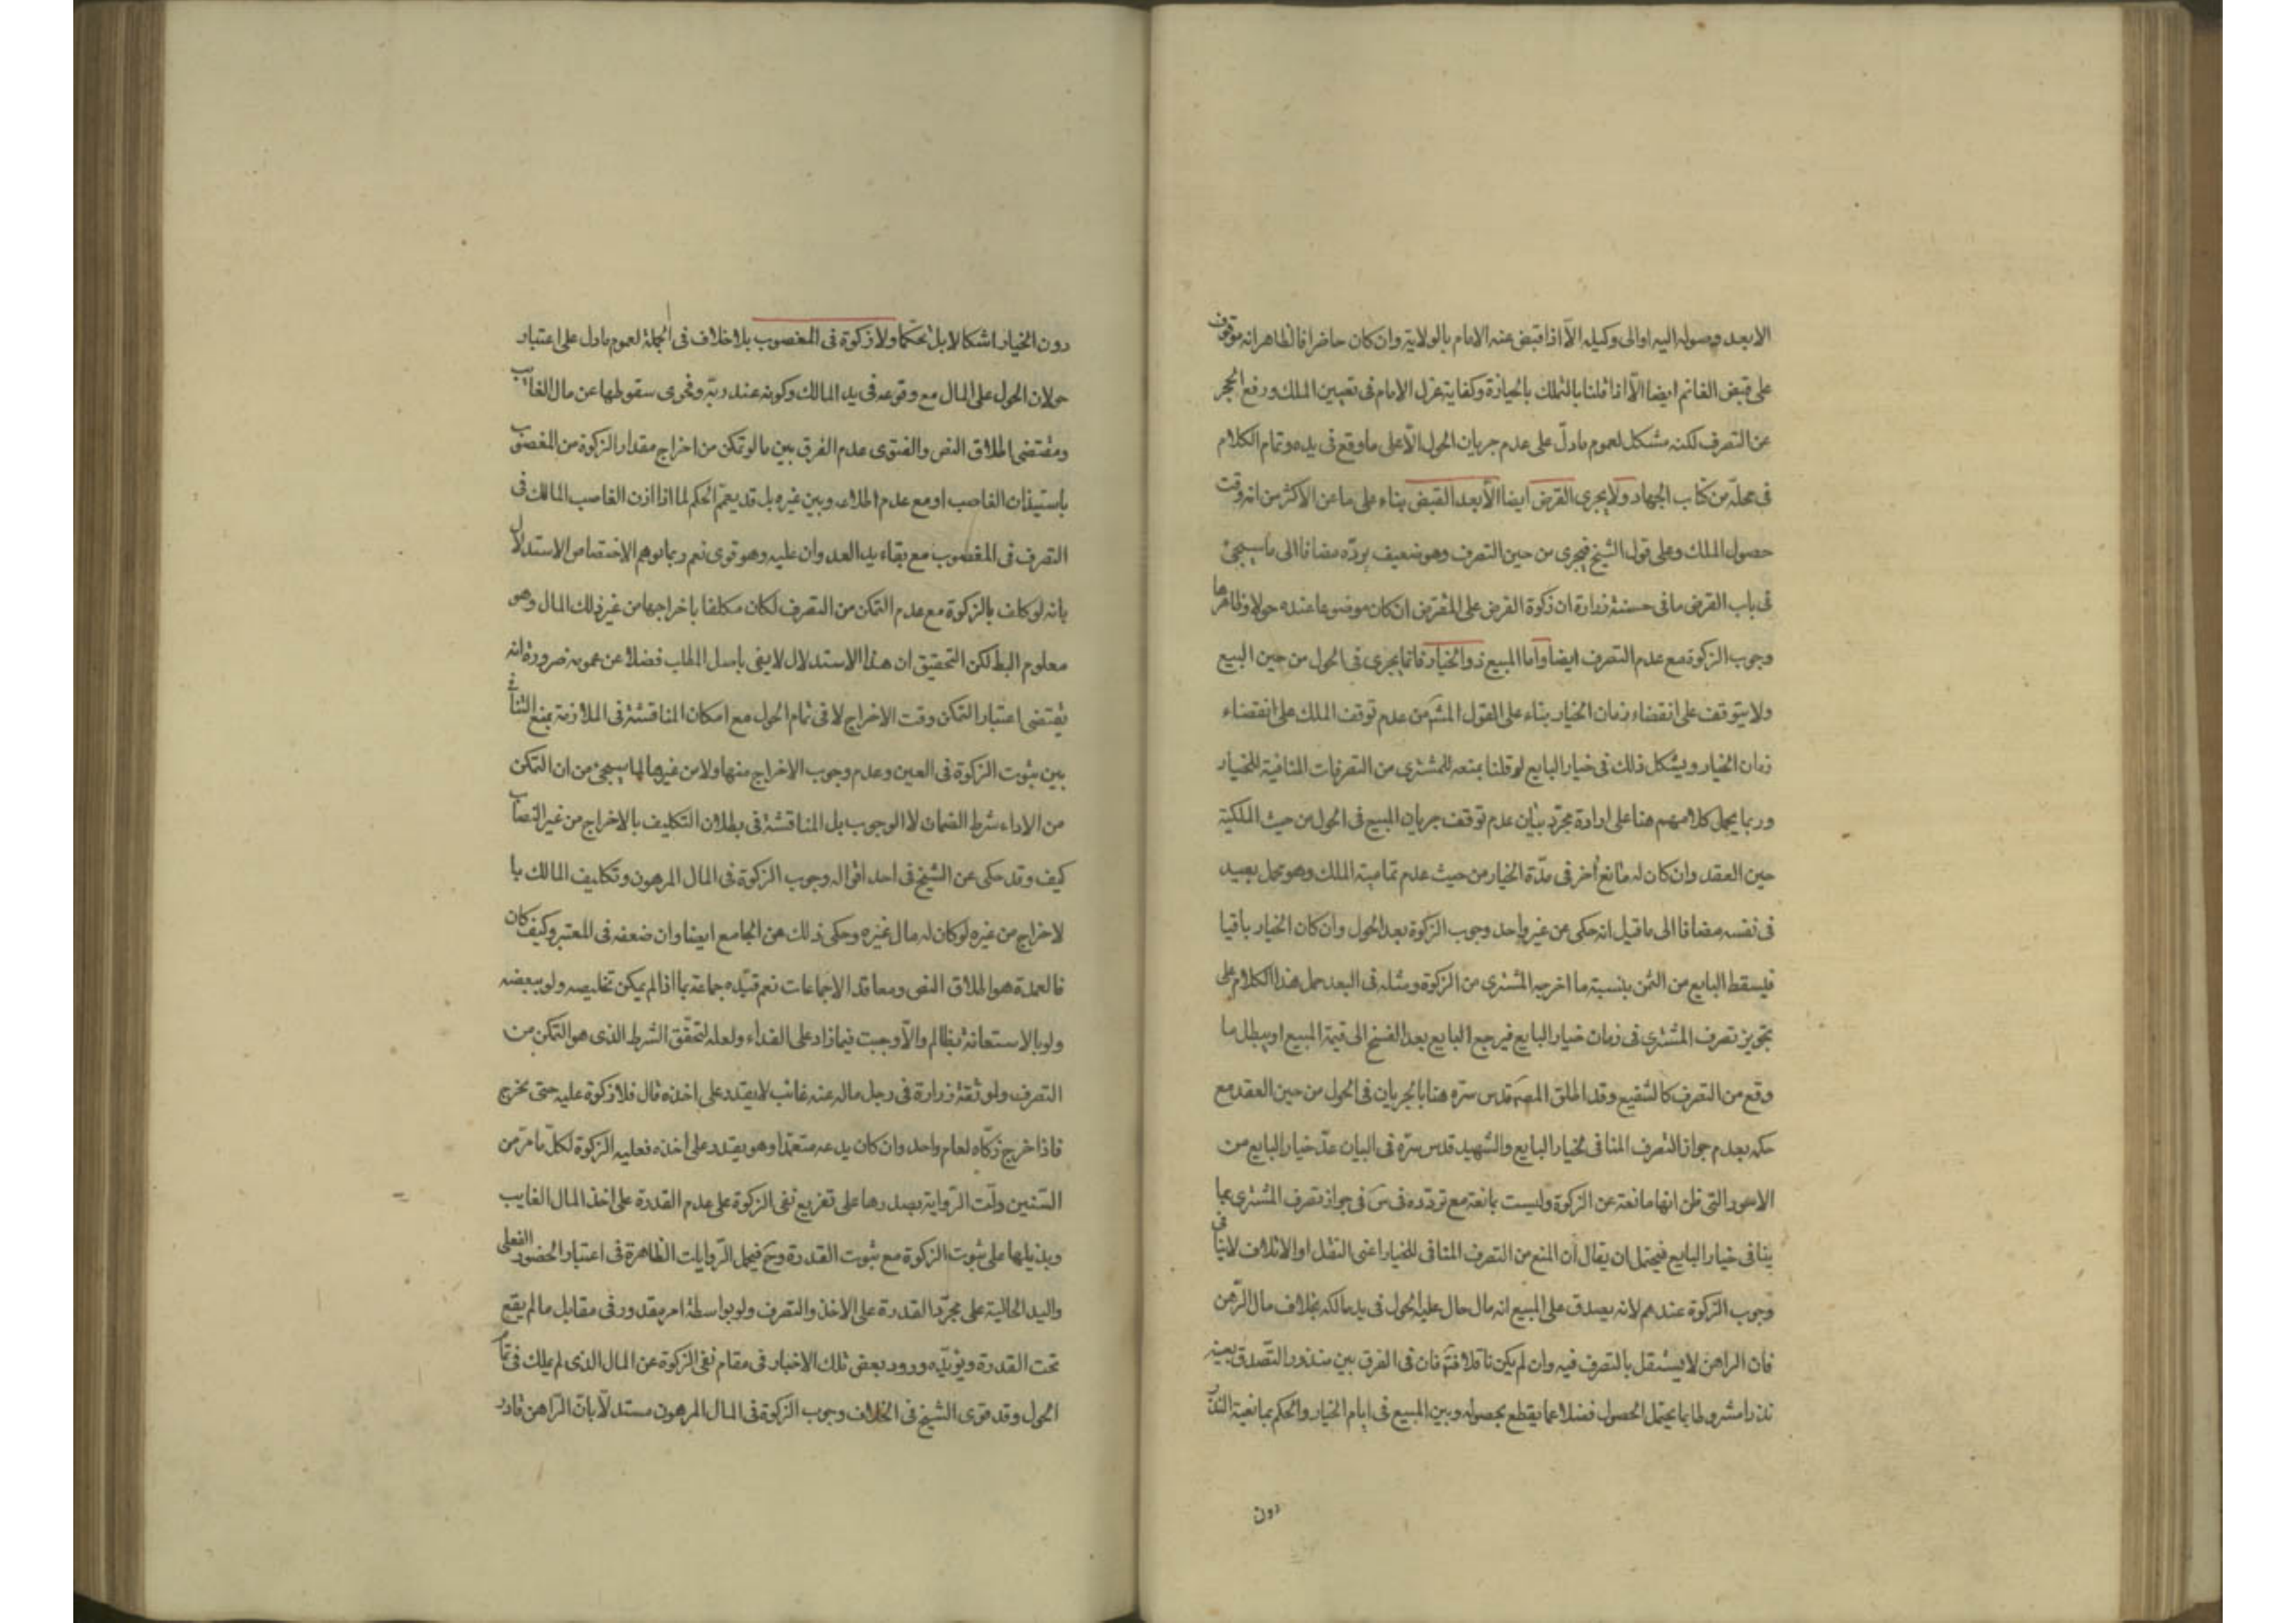 الا بعد وصوله اليه او الى وكيله الّا اذا قبض عنه الامام بالولاية وان كان حاضرا فالظاهر انه موقوف
على قبض الغانم ايضا الّا اذا قلنا بالتملك بالحيازة وكفاية عزل الامام فى تعيين الملك ورفع الحجر
عن التصرف لكنه مشكل لعموم ما دلّ على عدم جريان الحول الّا على ما وقع فى يده وتمام الكلام
فى محلّه من كتاب الجهاد ولا يجرى القرض ايضا الّا بعد القبض بناء على ما عن الاكثر من انه وقت
حصول الملك وعلى قول الشيخ فيجرى من حين التصرف وهو ضعيف يردّه مضافا الى ما سيجئ
فى باب القرض ما فى حسنة زرارة ان زكوة القرض على المقترض ان كان موضوعا عنده حولا وظاهرها
وجوب الزكوة مع عدم التصرف ايضا واما المبيع ذو الخيار فانما يجرى فى الحول من حين البيع
ولا يتوقف على انقضاء زمان الخيار بناء على القول المشهَ من عدم توقف الملك على انقضاء
زمان الخيار ويشكل ذلك فى خيار البايع لو قلنا بمنعه للمشترى من التصرفات المنافية للخيار
وربما يحمل كلامهم هنا على ارادة مجرّد بيان عدم توقف جريان المبيع فى الحول من حيث الملكية
حين العقد وان كان له مانع آخر فى مدّة الخيار من حيث عدم تمامية الملك وهو محمل بعيد
فى نفسه مضافا الى ما قيل انه حكى عن غير واحد وجوب الزكوة بعد الحول وان كان الخيار باقيا
فيسقط البايع من الثمن بنسبة ما اخرجه المشترى من الزكوة ومثله فى البعد حمل هذا الكلام على
تجويز تصرف المشترى فى زمان خيار البايع فيرجع البايع بعد الفسخ الى قيمة المبيع او يبطل ما
وقع من التصرف كالشفيع وقد اطلق المصَ قدس سرّه هنا بالجريان فى الحول من حين العقد مع
حكمه بعدم جواز التصرف المنافى لخيار البايع والشهيد قدس سرّه فى البيان عدّ خيار البايع من
الامور التى ظن انها مانعة عن الزكوة وليست بمانعة مع تردّده فى س فى جواز تصرف المشترى بما
ينافى خيار البايع فيحتمل ان يقال ان المنع من التصرف المنافى للخيار اعنى النقل او الاتلاف لا ينافى
وجوب الزكوة عندهم لانه يصدق على المبيع انه مال حال عليه الحول فى يد مالكه بخلاف مال الرهن
فان الراهن لا يستقل بالتصرف فيه وان لم يكن ناقلا فتمَ فان فى الفرق بين منذور التصدق بعينه
نذرا مشروطا بما يحتمل الحصول فضلا عما يقطع بحصوله وبين المبيع فى ايام الخيار والحكم بمانعية النذر
دون
دون الخيار اشكالا بل تحكّما ولا زكوة فى المغصوب بلا خلاف فى الجملة لعموم ما دل على اعتبار
حولان الحول على المال مع وقوعه فى يد المالك وكونه عند ربّه وفحوى سقوطها عن مال الغايب
ومقتضى اطلاق النص والفتوى عدم الفرق بين ما لو تمكن من اخراج مقدار الزكوة من المغصوب
باستيذان الغاصب او مع عدم اطلاعه وبين غيره بل قد يعمّ الحكم لما اذا اذن الغاصب المالك فى
التصرف فى المغصوب مع بقاء يد العدوان عليه وهو قوى نعم ربما يوهم الاختصاص الاستدلال
بانه لو كلف بالزكوة مع عدم التمكن من التصرف لكان مكلفا باخراجها من غير ذلك المال وهو
معلوم البط لكن التحقيق ان هذا الاستدلال لا يفى باصل المطلب فضلا عن عمومه ضرورة انه
يقتضى اعتبار التمكن وقت الاخراج لا فى تمام الحول مع امكان المناقشة فى الملازمة بمنع التنافى
بين ثبوت الزكوة فى العين وعدم وجوب الاخراج منها ولا من غيرها لما سيجئ من ان التمكن
من الاداء شرط الضمان لا الوجوب بل المناقشة فى بطلان التكليف بالاخراج من غير النصاب
كيف وقد حكى عن الشيخ فى احد اقواله وجوب الزكوة فى المال المرهون وتكليف المالك با
لاخراج من غيره لو كان له مال غيره وحكى ذلك عن الجامع ايضا وان ضعفه فى المعتبر وكيف كان
فالعمدة هو اطلاق النص ومعاقد الاجماعات نعم قيّده جماعة بما اذا لم يمكن تخليصه ولو ببعضه
ولو بالاستعانة بظالم والّا وجبت فيما زاد على الفداء ولعله لتحقّق الشرط الذى هو التمكن من
التصرف ولموثقة زرارة فى رجل ماله عنه غائب لا يقدر على اخذه قال فلا زكوة عليه حتى يخرج
فاذا خرج زكّاه لعام واحد وان كان يدعه متعمّدا وهو يقدر على اخذه فعليه الزكوة لكلّ ما مرّ من
السّنين دلّت الرّواية بصدرها على تفريع نفى الزكوة على عدم القدرة على اخذ المال الغايب
وبذيلها على ثبوت الزكوة مع ثبوت القدرة وحَ فيحمل الرّوايات الظاهرة فى اعتبار الحضور الفعلى
واليد الحالية على مجرّد القدرة على الاخذ والتصرف ولو بواسطة امر مقدور فى مقابل ما لم يقع
تحت القدرة ويؤيّده ورود بعض تلك الاخبار فى مقام نفى الزكوة عن المال الذى لم يملك فى تمام
الحول وقد قوى الشيخ فى الخلاف وجوب الزكوة فى المال المرهون مستدلّا بانّ الرّاهن قادر